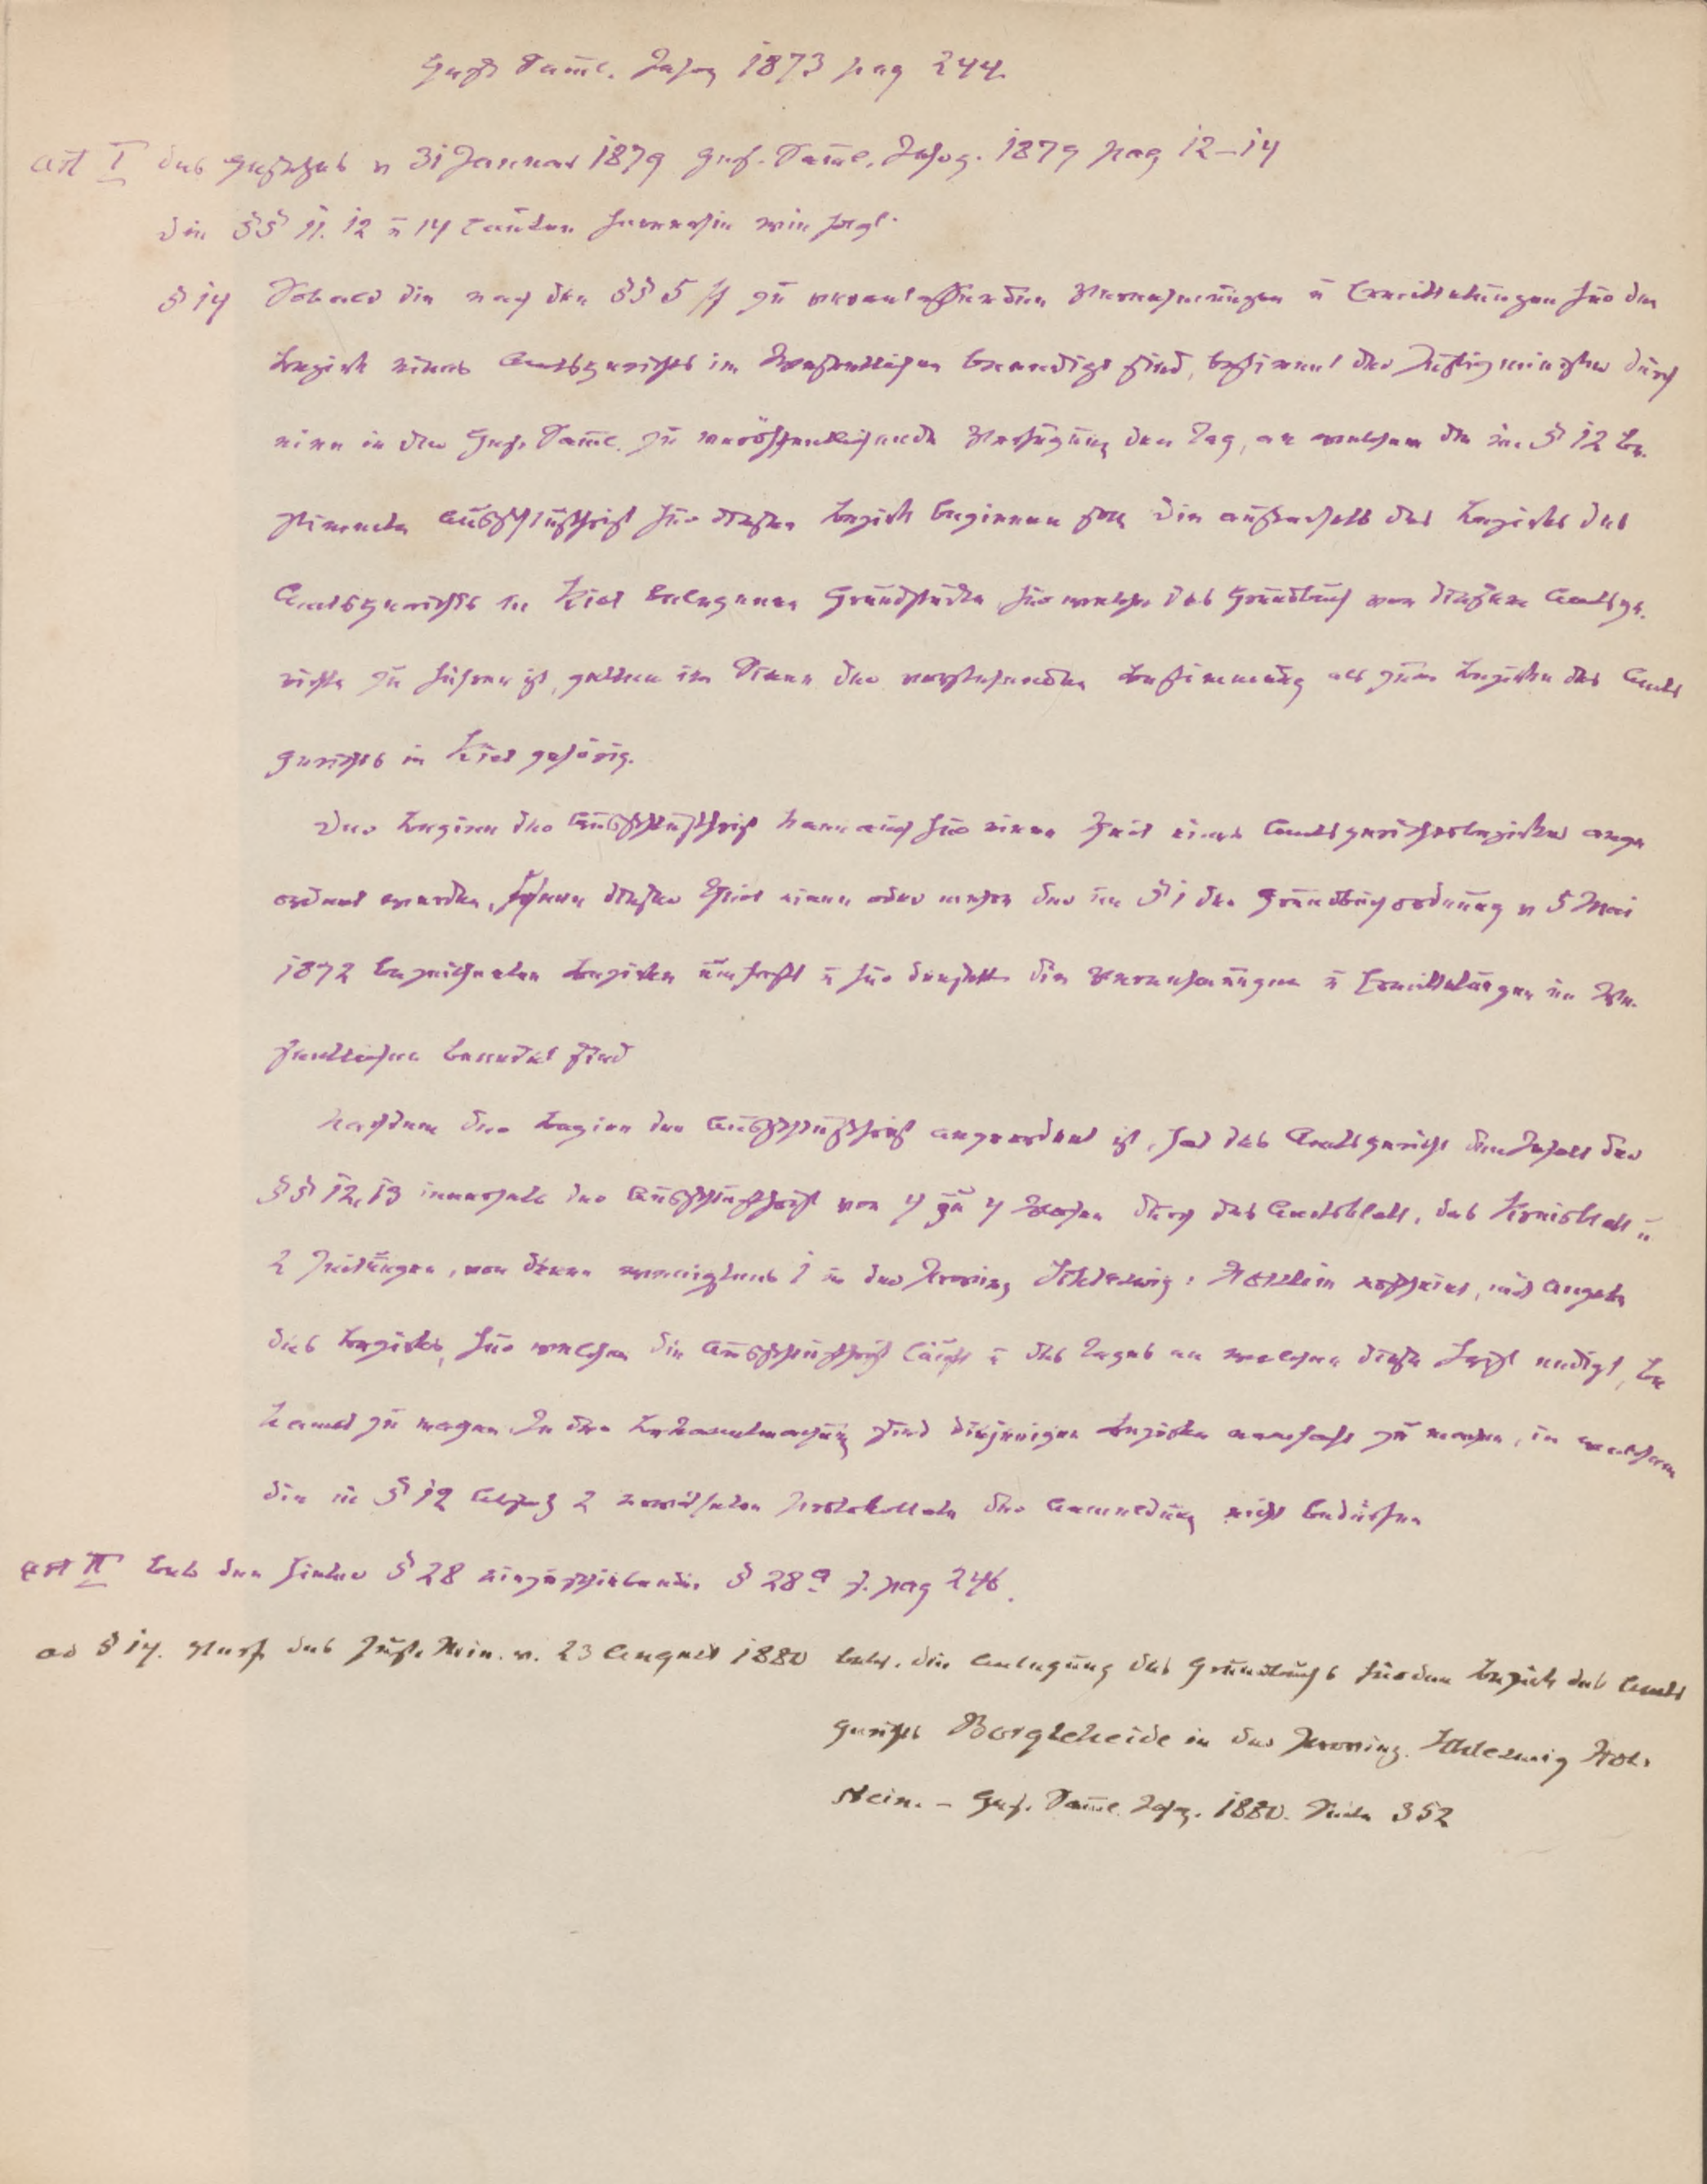 Gesetz Saml. Jahrg 1873 pag 244.
Art I des Gesetzes v 31 Januar 1879 Ges. Saml. Jahrg. 1879 pag 12–14
die §§ 11. 12 u 14 lauten fernerhin wie folgt.
§ 14 Sobald die nach den §§ 5 ff zu veranlassenden Vernehmungen u Ermittelungen für den
Bezirk eines Amtsgerichts im Wesentlichen beendigt sind, bestimmt der Justizminister durch
eine in der Ges. Saml. zu veröffentlichende Verfügung den Tag, an welchem die im § 12 be-
stimmte Ausschlußfrist für diesen Bezirk beginnen soll die außerhalb des Bezirks des
Amtsgerichts in Kiel belegenen Grundstücke für welche das Grundbuch von diesem Amtsge-
richte zu führen ist, gelten im Sinne der vorstehenden Bestimmung als zum Bezirke des Amts
gerichts in Kiel gehörig.
Der Beginn der Ausschlußfrist kann auch für einen Theil eines Amtsgerichtsbezirkes ange
ordnet werden, sofern dieser Theil einen oder mehre der im § 1 der Grundbuchordnung v 5 Mai
1872 bezeichneten Bezirke umfaßt u für denselben die Vernehmungen u Ermittelungen im We-
sentlichen beendet sind
Nachdem der Beginn der Ausschlußfrist angeordnet ist, hat das Amtsgericht den Inhalt der
§§ 12, 13 innerhalb der Ausschlußfrist von 4 zu 4 Wochen durch das Amtsblatt, das Kreisblatt u
2 Zeitungen, von denen wenigstens 1 in der Provinz Schleswig-Holstein erscheint, mit Angabe
des Bezirks, für welchen die Ausschlußfrist läuft u des Tages an welchem diese Frist endigt, be
kannt zu machen. In der Bekanntmachung sind diejenigen Bezirke namhaft zu machen, in welchen
die in § 12 Absatz 2 erwähnten Protokollate der Anmeldung nicht bedürfen
Art II betr. den hinter § 28 einzuschiebenden § 28a s. pag 246.
ad § 14. Verf. des Just. Min. v. 23 August 1880 betr. die Anlegung des Grundbuchs für den Bezirk des Amts
gerichts Bargteheide in der Provinz. Schleswig Hol-
stein. – Ges. Saml. Jahrg. 1880. Seite 352